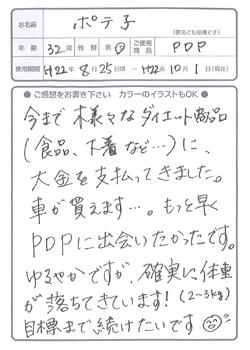 お名前 ポテ子
(匿名でも結構です)
年齢 32歳 性別 男・女 ご使用商品 PDP
使用期間 H22年8月25日頃 〜 H22年10月1日(現在)
● ご感想をお書き下さい カラーのイラストもOK ●
今まで様々なダイエット商品
(食品、下着など…)に、
大金を支払ってきました。
車が買えます…。もっと早く
PDPに出会いたかったです。
ゆるやかですが、確実に体重
が落ちてきています!(2〜3kg)
目標まで続けたいです